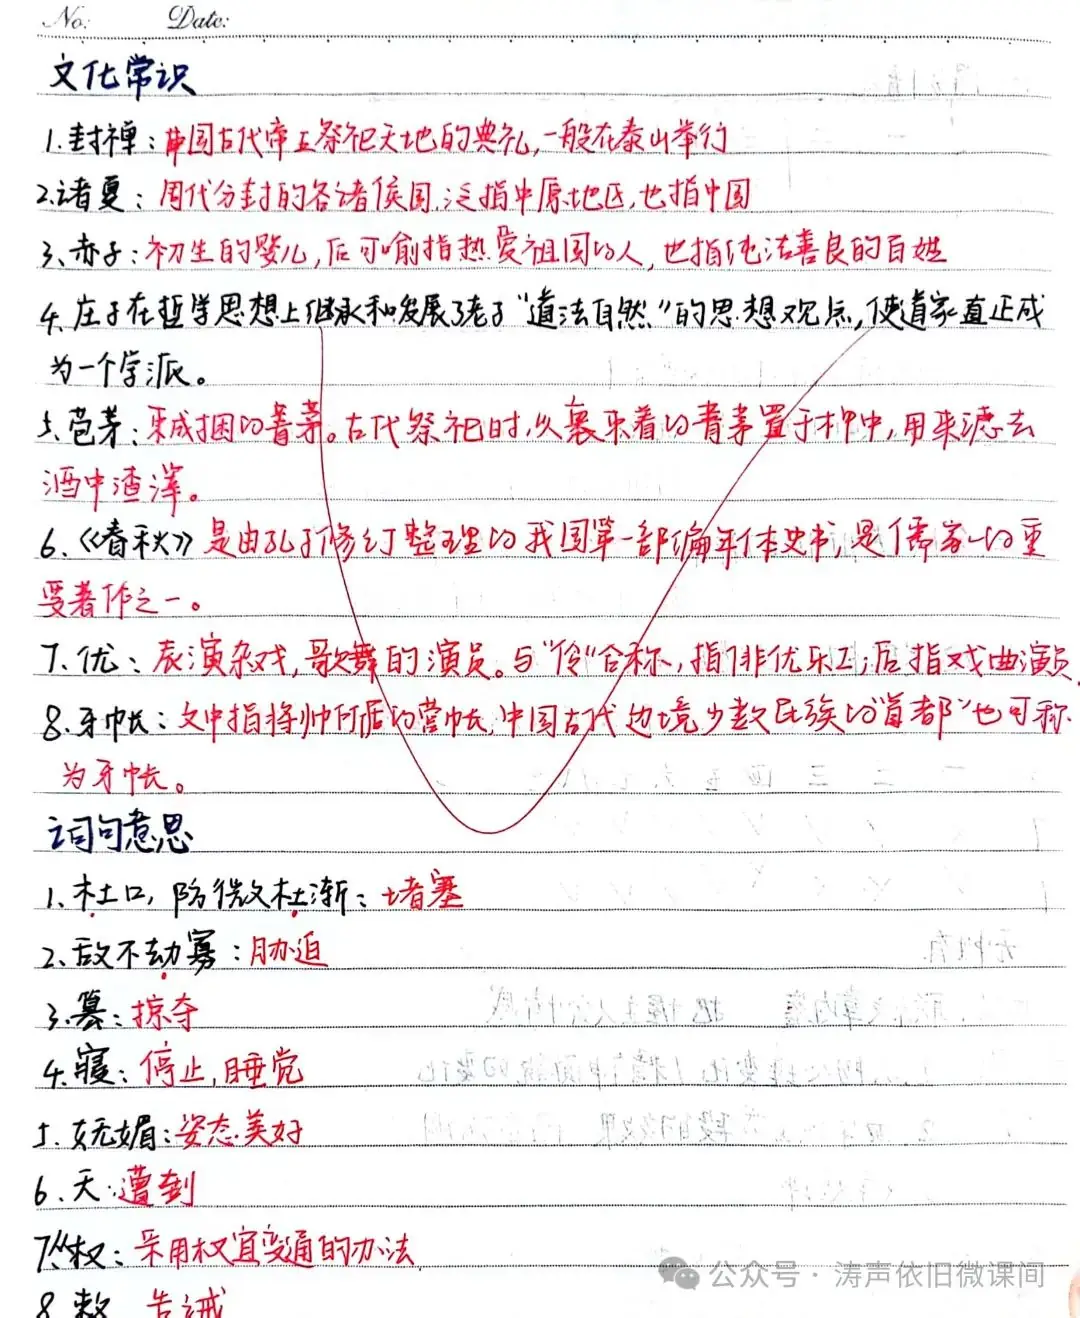 No: Date:
文化常识
1.封禅：中国古代帝王祭祀天地的典礼,一般在泰山举行
2.诸夏：周代分封的各诸侯国.泛指中原地区,也指中国
3.赤子：初生的婴儿,后可喻指热爱祖国的人,也指纯洁善良的百姓
4.庄子在哲学思想上继承和发展了老子“道法自然”的思想观点,使道家真正成
为一个学派。
5.苞茅：束成捆的菁茅。古代祭祀时,以裹束着的菁茅置于柙中,用来滤去
酒中渣滓。
6.《春秋》是由孔子修订整理的我国第一部编年体史书,是儒家的重
要著作之一。
7.优：表演杂戏,歌舞的演员。与“伶”合称,指俳优乐工,后指戏曲演员.
8.牙帐：文中指将帅所居的营帐,中国古代边境少数民族的“首都”也可称
为牙帐。
词句意思
1.杜口,防微杜渐：堵塞
2.敌不劫寡：胁迫
3.篡：掠夺
4.寝：停止,睡觉
5.妩媚：姿态美好
6.夭：遭到
7.从权：采用权宜变通的办法
8.敕 告诫
公众号·涛声依旧微课间